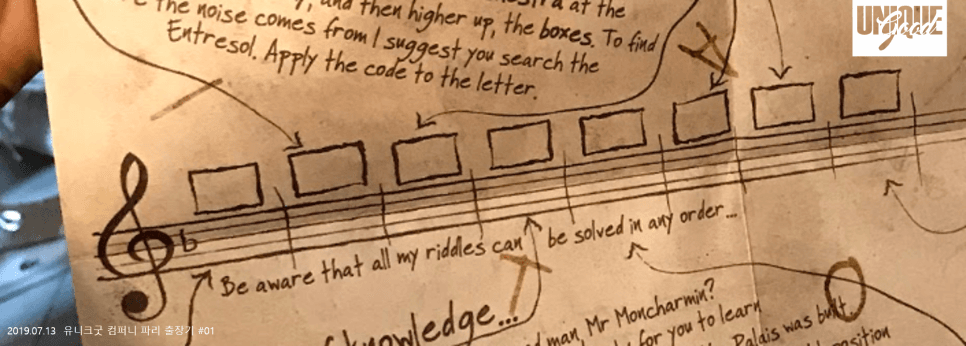 and then higher up, the boxes. To find
the noise comes from I suggest you search the
Entresol. Apply the code to the letter.
UNIQUE
Good
Be aware that all my riddles can be solved in any order...
knowledge...
man, Mr Moncharmin?
for you to learn
Palais was built
2019.07.13 유니크굿 컴퍼니 파리 출장기 #01